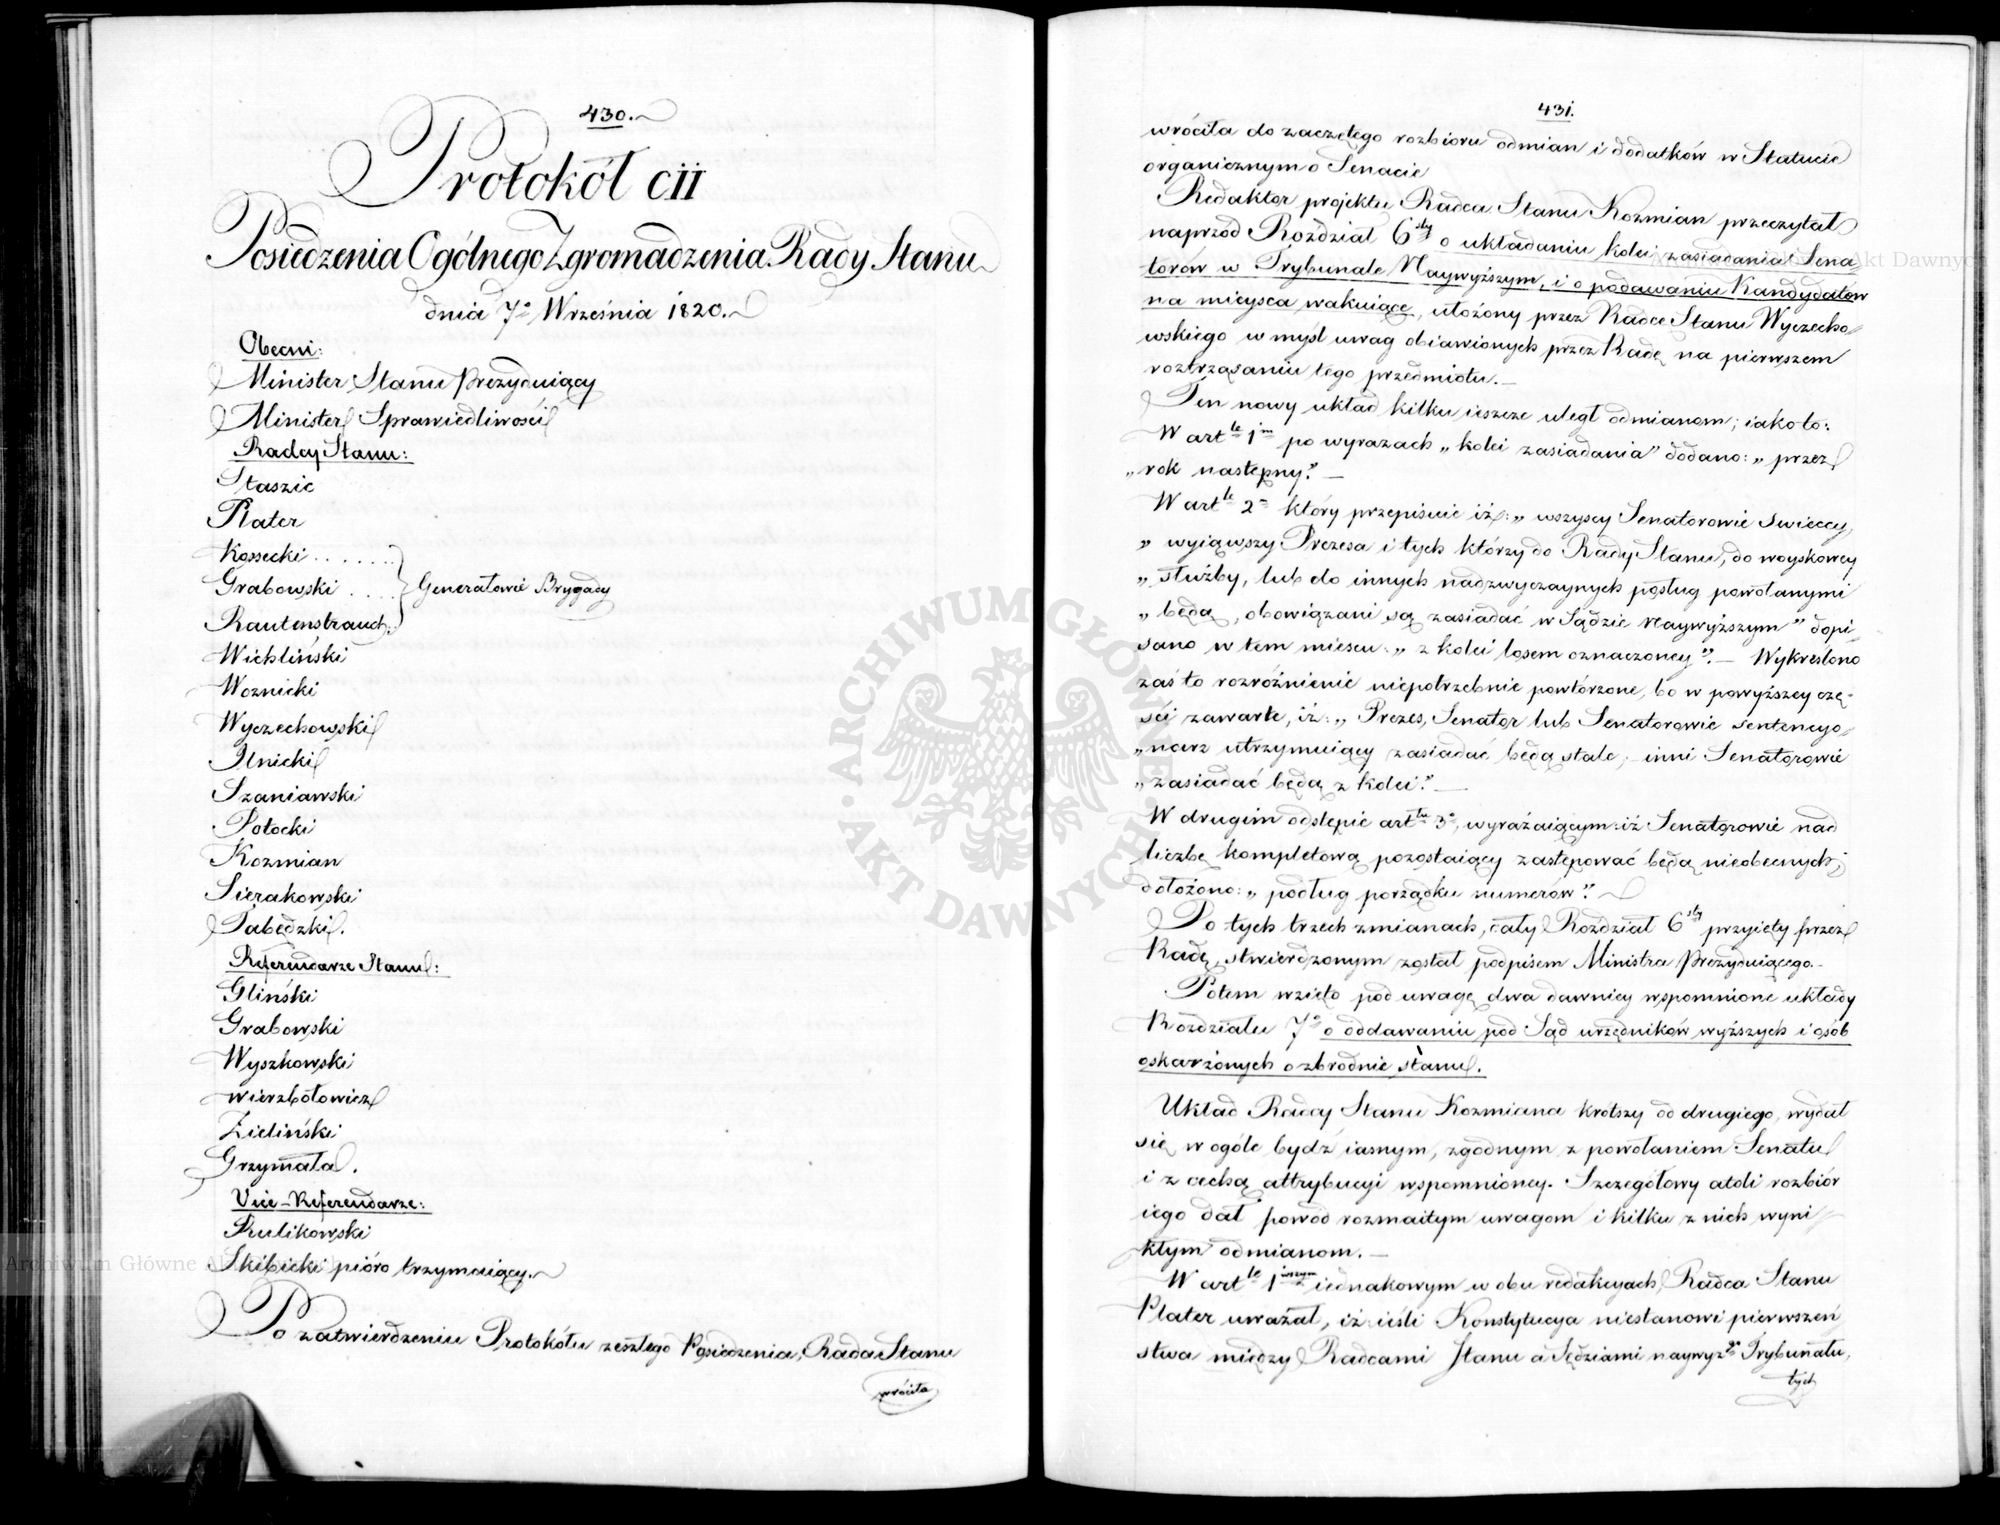 430.
Protokół CII
Posiedzenia Ogólnego Zgromadzenia Rady Stanu
dnia 7º Września 1820.
Obecni:
Minister Stanu Prezyduiący
Minister Sprawiedliwości
Radcy Stanu:
Staszic
Plater
Kossecki . . . . . .
Grabowski . . . . Generałowie Brygady
Rautenstrauch.
Wichliński
Woznicki
Wyczechowski
Ilnicki
Szaniawski
Potocki
Kozmian
Sierakowski
Łabędzki.
Referendarze Stanu:
Gliński
Grabowski
Wyszkowski
Wierzbołowicz
Zieliński
Grzymała.
Vice-Referendarze:
Kulikowski
Skibicki pióro trzymaiący.
Po zatwierdzeniu Protokółu zeszłego Posiedzenia, Rada Stanu
wróciła
431.
wróciła do zaczętego rozbioru odmian i dodatków w Statucie
organicznym o Senacie
Redaktor projektu Radca Stanu Kozmian przeczytał
naprzód Rozdział 6sty o układaniu kolei zasiadania Sena-
torów w Trybunale Naywyższym, i o podawaniu Kandydatów
na mieysca wakuiące, ułożony przez Radcę Stanu Wyczecho-
wskiego w myśl uwag obiawionych przez Radę na pierwszem
roztrząsaniu tego przedmiotu. —
Ten nowy układ kilku ieszcze uległ odmianom; iako to:
W artle 1m po wyrazach „kolei zasiadania" dodano: „przez
„rok następny". —
W artle 2m który przepisuie iż: „wszyscy Senatorowie świeccy,
„wyiąwszy Prezesa i tych którzy do Rady Stanu, do woyskowey
„służby, lub do innych nadzwyczaynych posług powołanymi
„będą, obowiązani są zasiadać w Sądzie Naywyższym" dopi-
sano w tem miescu: „z kolei losem oznaczoney". — Wykreślono
zaś to rozróżnienie niepotrzebnie powtórzone, bo w powyższey czę-
ści zawarte, iż: „Prezes, Senator lub Senatorowie sentencyo-
„narz utrzymuiący zasiadać będą stale, inni Senatorowie
„zasiadać będą z kolei". —
W drugim odstępie arttu 3º, wyrażaiącym iż Senatorowie nad
liczbę kompletową pozostaiący zastępować będą nieobecnych,
dołożono: „podług porządku numerów".
Po tych trzech zmianach, cały Rozdział 6sty przyięty przez
Radę, stwierdzonym został podpisem Ministra Prezyduiącego.
Potem wzięto pod uwagę dwa dawniey wspomnione układy
Rozdziału 7º o oddawaniu pod Sąd urzędników wyższych i osób
oskarżonych o zbrodnie stanu.
Układ Radcy Stanu Kozmiana krótszy od drugiego, wydał
się w ogóle bydź iasnym, zgodnym z powołaniem Senatu
i z cechą attrybucyi wspomnioney. Szczegółowy atoli rozbiór
iego dał powód rozmaitym uwagom i kilku z nich wyni-
kłym odmianom. —
W artle 1wszym iednakowym w obu redakcyach, Radca Stanu
Plater uważał, iż ieśli Konstytucya niestanowi pierwszeń
stwa między Radcami Stanu a Sędziami naywyżgo Trybunału,
tych
Archiwum Główne Akt Dawnych
ARCHIWUM GŁÓWNE AKT DAWNYCH